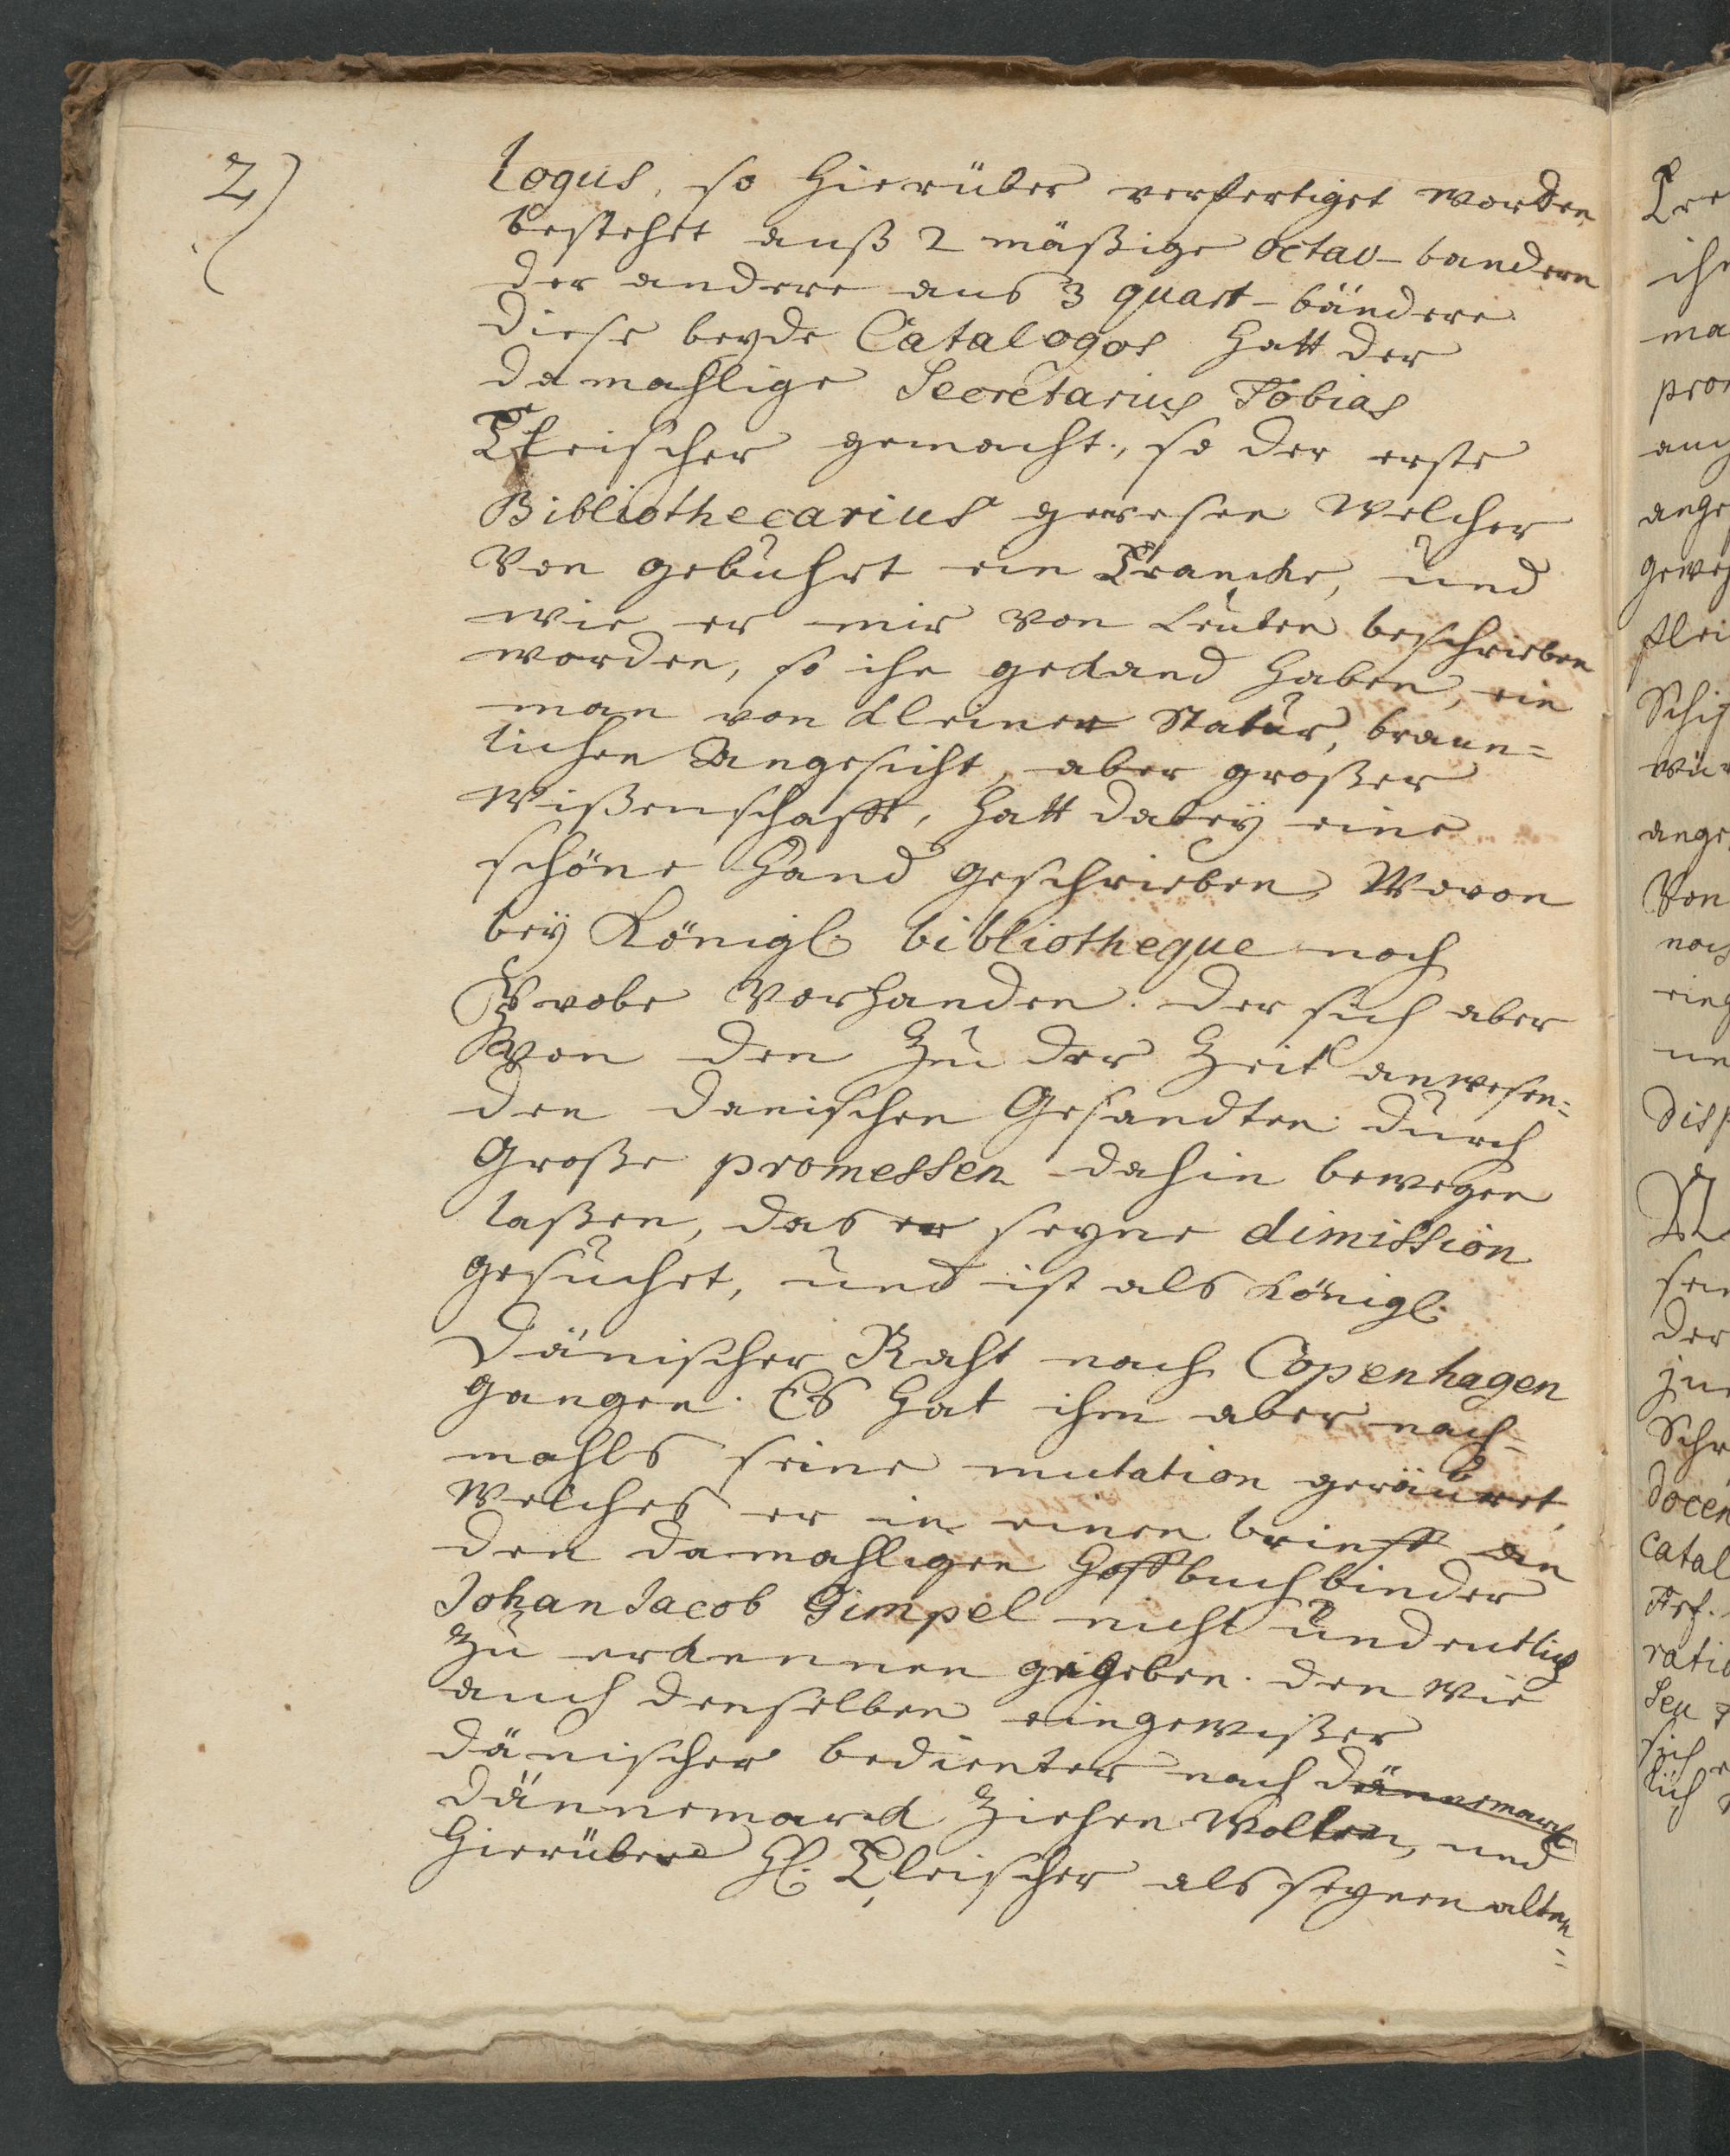 2)
logus, so hierüber verfertiget worden
bestehet auß 2 mäßige octav-bandern
der andere aus 3 quart-bändere
diese beyde Catalogos hatt der
damahlige Secretarius Tobias
Fleischer gemacht, so der erste
Bibliothecarius gewesen welcher
Von gebuhrt ein Francke, und
wie er mir von Leuten beschrieben
worden, so ihn gekand haben, ein
man von kleiner Statur, braun=
lichen Angesicht, aber großer
Wißenschafft, hatt dabey eine
schöne Hand geschrieben, Wovon
bey Königl. bibliotheque noch
Probe Vorhanden. der sich aber
Von den zu der Zeit anwesen=
den danischen Gesandten durch
Große promessen dahin bewegen
laßen, das er seyne dimission
gesuchet, und ist als Königl.
Dänischer Raht nach Copenhagen
gangen. Es hat ihm aber nach=
mahls seine mutation
Welches er in einen brieff an
den damahligen Hoffbuchbinder
Johan Jacob Gimpel nicht undeutlich
zu erkennen gegeben. den wie
auch denselben ein gewißer
dänischer bedienter nach Dännemarck
Dännemarck ziehen Wollen, und
hierüber H. Fleischer als seynen alten=
Fre
ihn
ma
pro
auch
ange
gewes
flei
Schi
wür
ange
Von
noch
ein
un
disp
sein
der
Schr
docen
catal
rati
seu
sich
lich